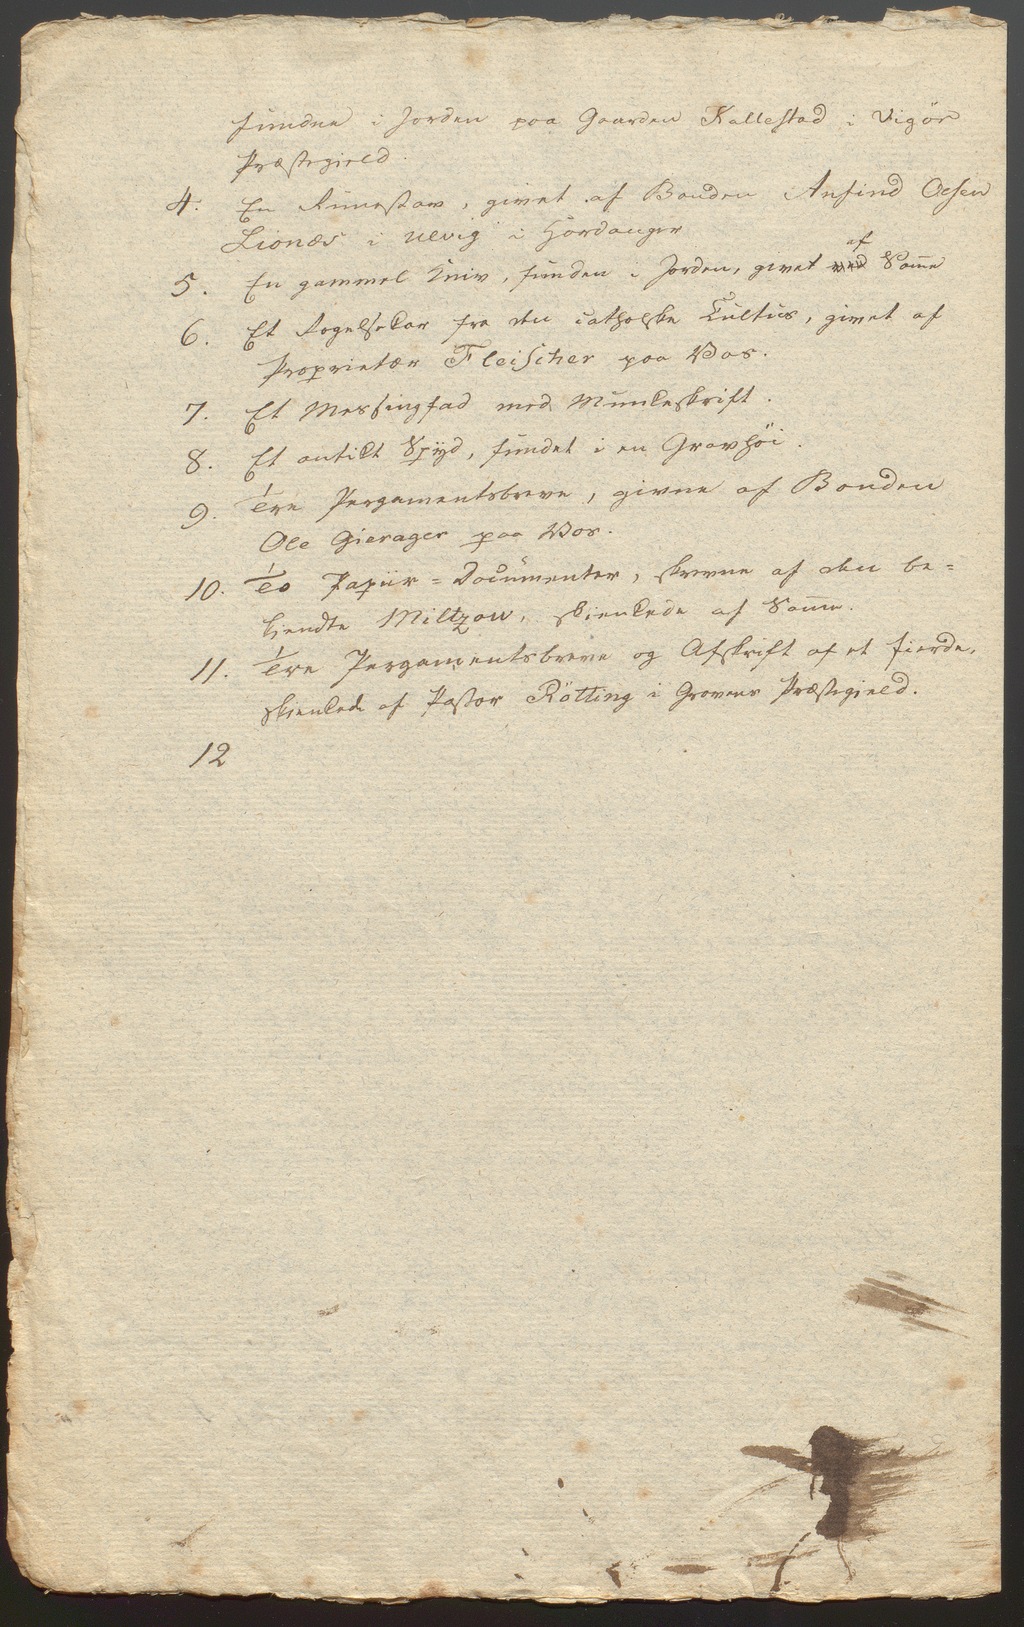 fundne i Jorden paa Gaarden Kallestad i Vigör
Præstegield.
4. En Runestav, givet af Bonden Anfind Olsen
Lionæs i Ulvig i Hardanger
5. En gammel Kniv, funden i Jorden, givet af Samme
6. Et Røgelsekar fra den catholske Cultus, givet af
Proprietær Fleischer paa Vos.
7. Et Messingfad med Munkeskrift.
8. Et antikt Spyd, fundet i en Gravhöi.
9. Tre Pergamentsbreve, givne af Bonden
Ole Gierager paa Vos.
10. To Papiir-Documenter, skrevne af den be=
kiendte Miltzow, skienkede af Samme.
11. Tre Pergamentsbreve og Afskrift af et fierde,
skienkede af Pastor Rötting i Gravens Præstegield.
12